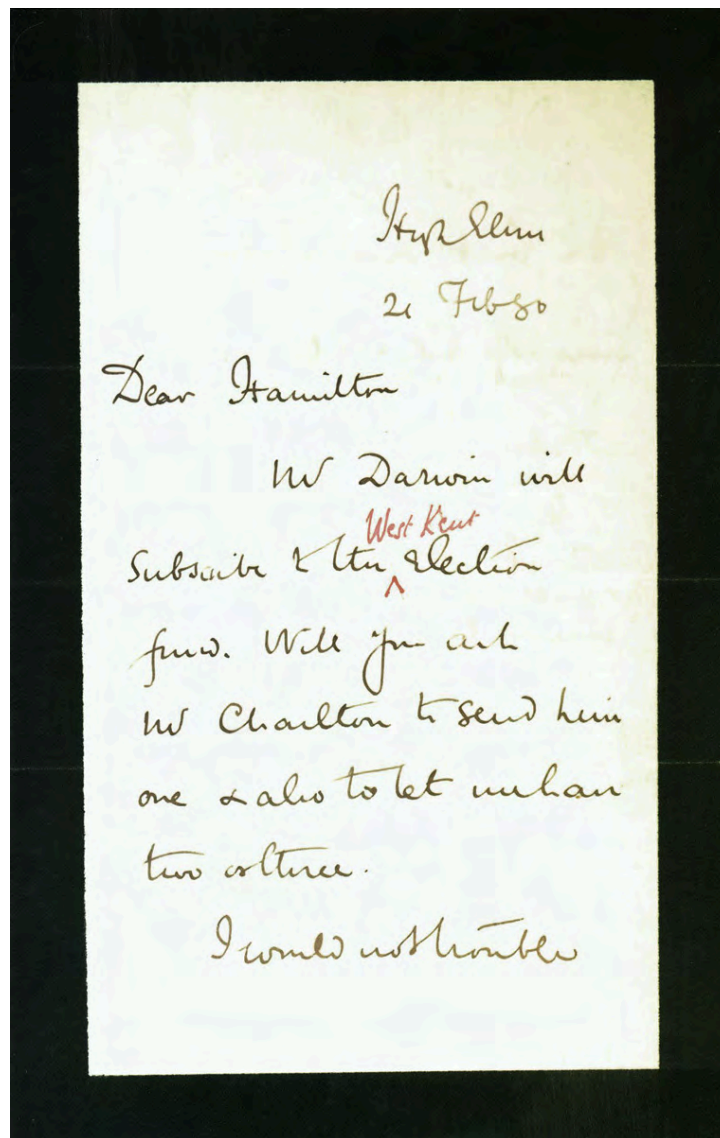 High Elms
21 Feb 80
Dear Hamilton
Mr Darwin will
West Kent
subscribe to the ^ Election
fund. Will you ask
Mr Charlton to send him
one & also to let me have
two or three.
I would not trouble